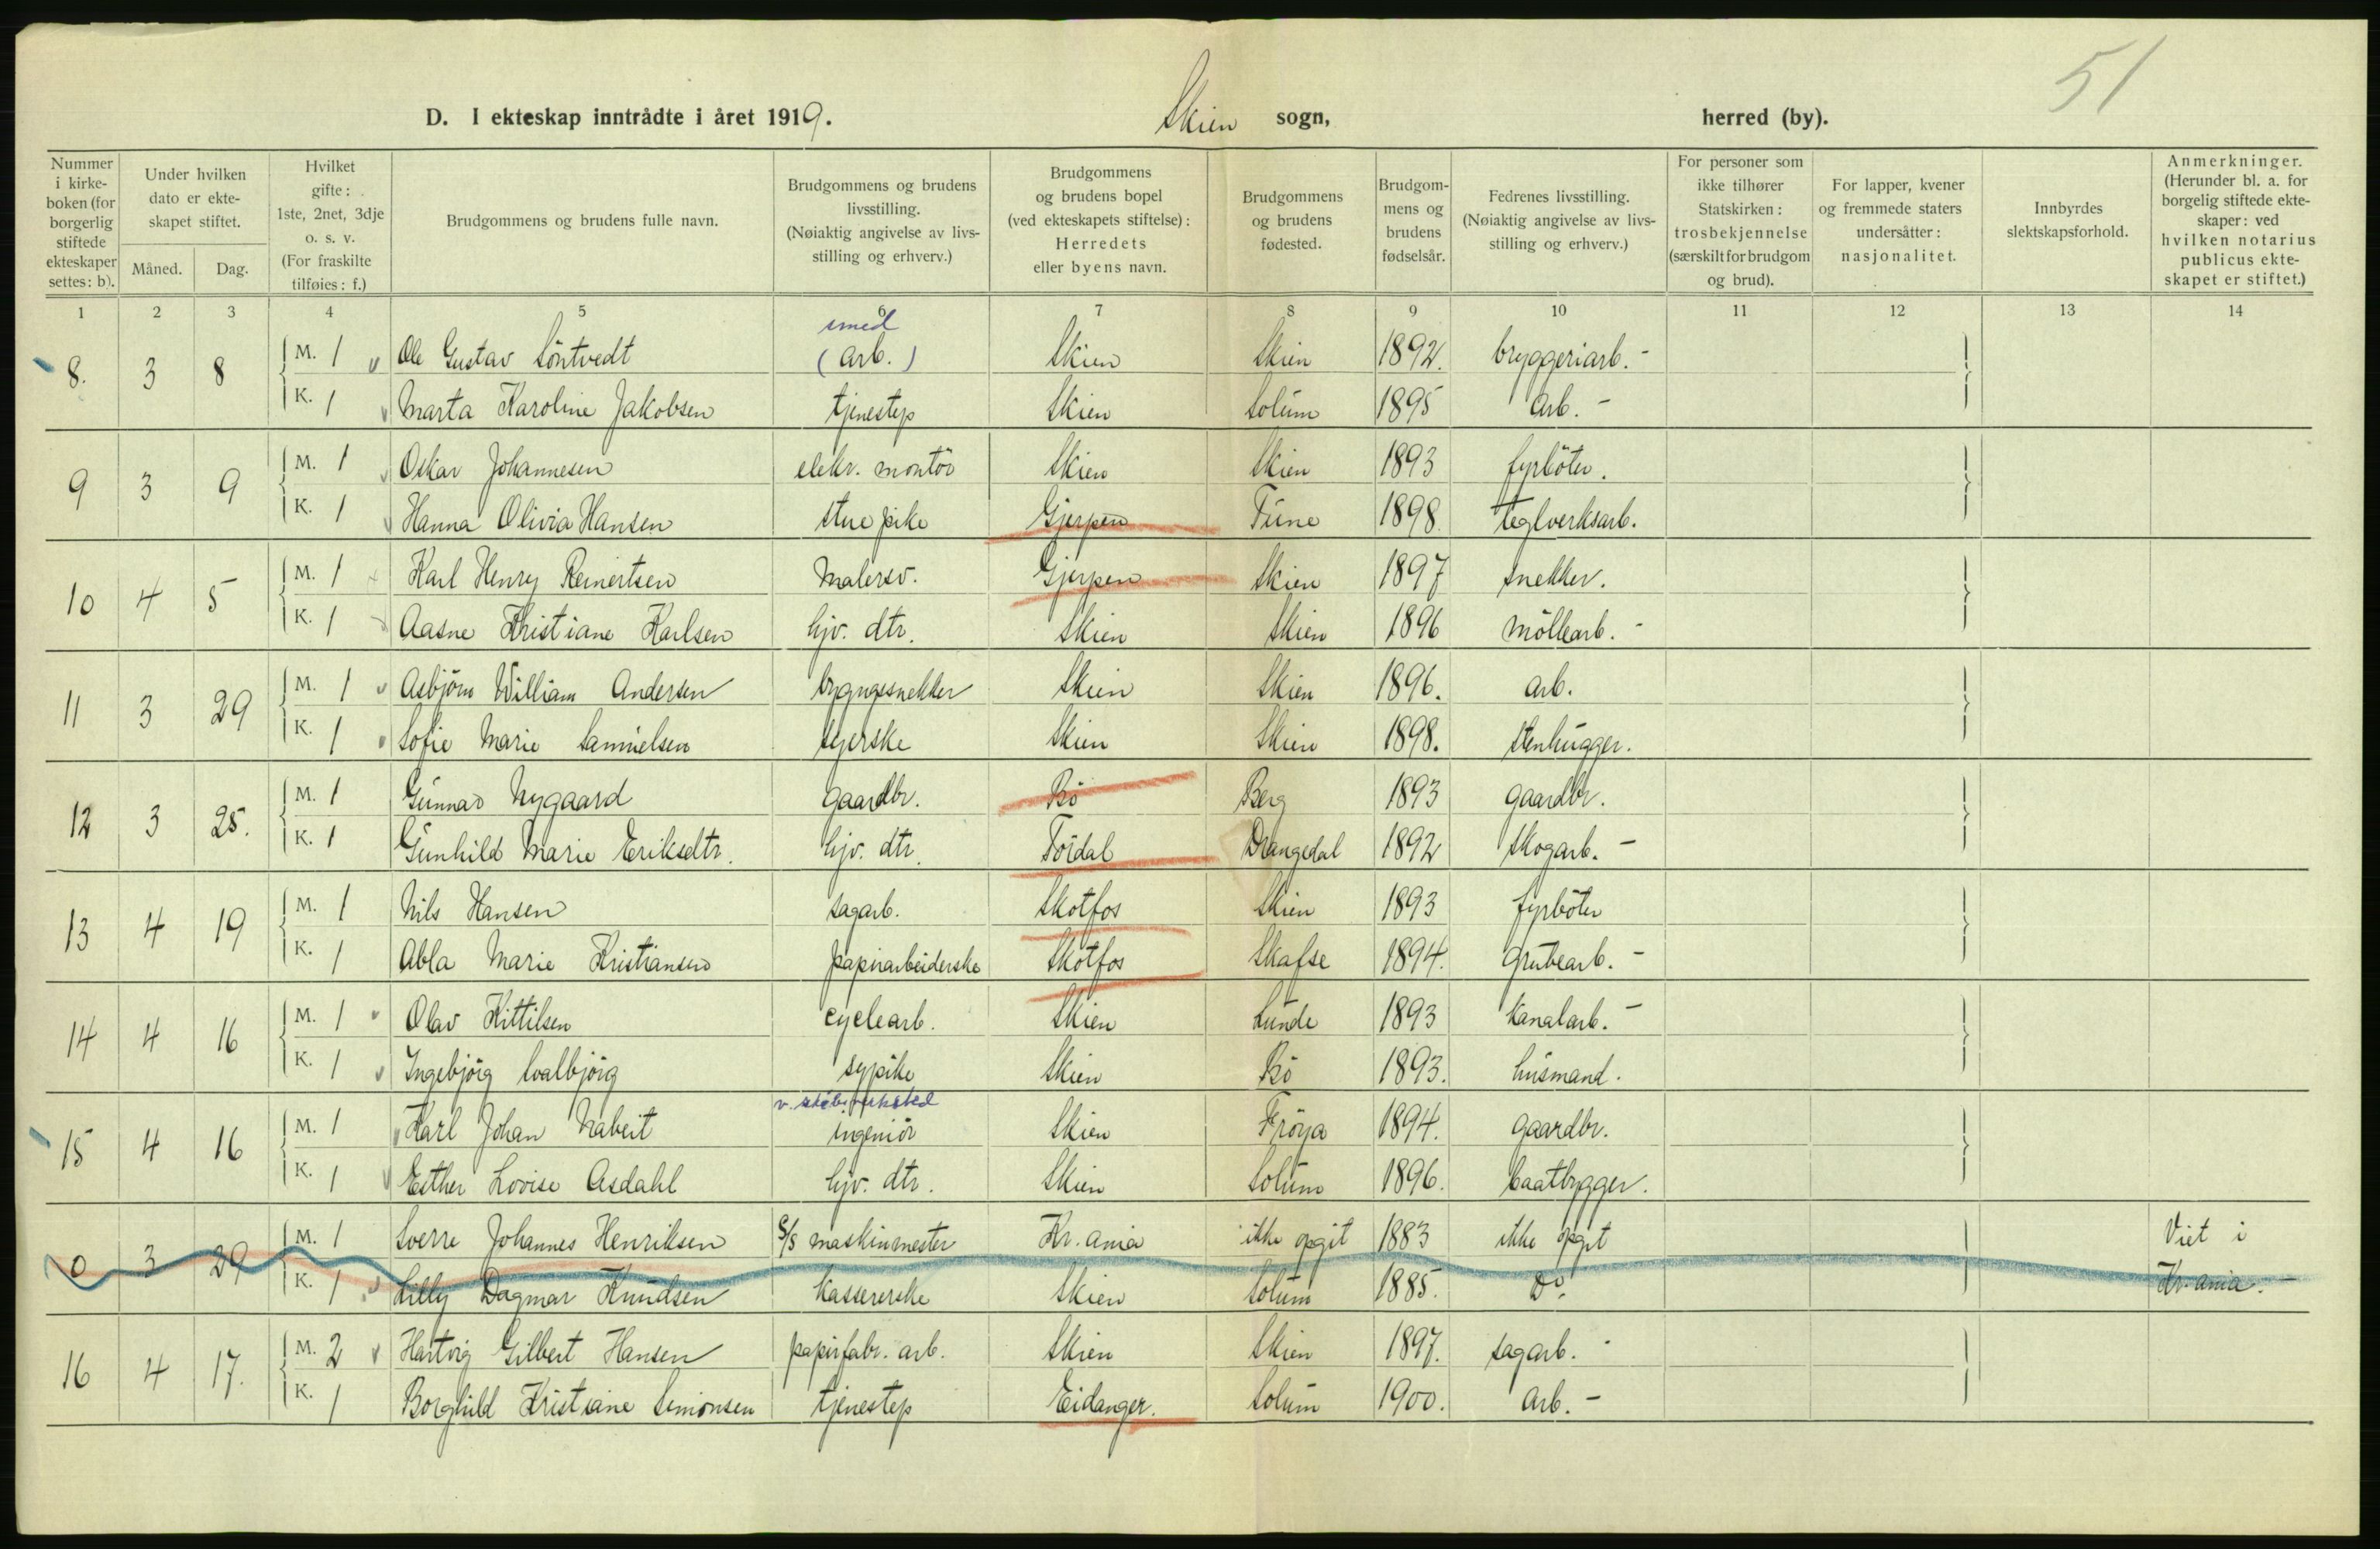 51
D. I ekteskap inntrådte i året 1919. Skien sogn, herred (by).
Nummer i kirkeboken (for borgerlig stiftede ekteskaper settes: b).
Under hvilken dato er ekteskapet stiftet.
Måned. Dag.
Hvilket gifte: 1ste, 2net, 3dje o. s. v. (For fraskilte tilføies: f.)
Brudgommens og brudens fulle navn.
Brudgommens og brudens livsstilling. (Nøiaktig angivelse av livsstilling og erhverv.)
Brudgommens og brudens bopel (ved ekteskapets stiftelse): Herredets eller byens navn.
Brudgommens og brudens fødested.
Brudgommens og brudens fødselsår.
Fedrenes livsstilling. (Nøiaktig angivelse av livsstilling og erhverv.)
For personer som ikke tilhører Statskirken: trosbekjennelse (særskilt for brudgom og brud).
For lapper, kvener og fremmede staters undersåtter: nasjonalitet.
Innbyrdes slektskapsforhold.
Anmerkninger. (Herunder bl. a. for borgelig stiftede ekteskaper: ved hvilken notarius publicus ekteskapet er stiftet.)
1 2 3 4 5 6 7 8 9 10 11 12 13 14
smed
8. 3 8 M. 1 Ole Gustav Söntvedt (arb.) Skien Skien 1892. bryggeriarb. -
K. 1 Marta Karoline Jakobsen tjenestep Skien Solum 1895 Arb. -
9 3 9 M. 1 Oskar Johannesen elekr. montör Skien Skien 1893 fyrböter.
K. 1 Hanna Olivia Hansen stuepike Gjerpen Tune 1898. teglverksarb.
10 4 5 M. 1 Karl Henry Reinertsen Malersv. Gjerpen Skien 1897 snekker.
K. 1 Aasne Kristiane Karlsen hjv. dtr. Skien Skien 1896 möllearb. -
11 3 29 M. 1 Asbjörn William Andersen bygngssnekker Skien Skien 1896. arb.
K. 1 Sofie Marie Samuelsen syerske Skien Skien 1898. Stenhugger.
12 3 25. M. 1 Gunnar Nygaard gaardbr. Bö Berg 1893 gaardbr.
K. 1 Gunhild Marie Eriksdtr. hjv. dtr. Tördal Drangedal 1892 Skogarb. -
13 4 19 M. 1 Nils Hansen sagarb. Skotfos Skien 1893 fyrböter
K. 1 Abla Marie Kristiansen papirarbeiderske Skotfos Skafse 1894. Grubearb. -
14 4 16 M. 1 Olav Kittilsen cyclearb. Skien Lunde 1893 kanalarb. -
K. 1 Ingebjörg Svalbjörg sypike Skien Bö 1893. husmand.
15 4 16 M. 1 Karl Johan Nabeit ingeniör Skien Fröya 1894. gaardbr.
K. 1 Esther Lovise Asdahl hjv. dtr. Skien Solum 1896. baatbygger.
0 3 29 M. 1 Sverre Johannes Henriksen S/S maskinmester Kr.ania ikke opgit 1883 ikke opgit Viet i
K. 1 Lilly Dagmar Knudsen kassererske Skien Solum 1885. Do. Kr.ania. -
16 4 17. M. 2 Hartvig Gilbert Hansen papirfabr. arb. Skien Skien 1897. sagarb. -
K. 1 Borghild Kristiane Simonsen tjenestep Eidanger. Solum 1900. Arb. -